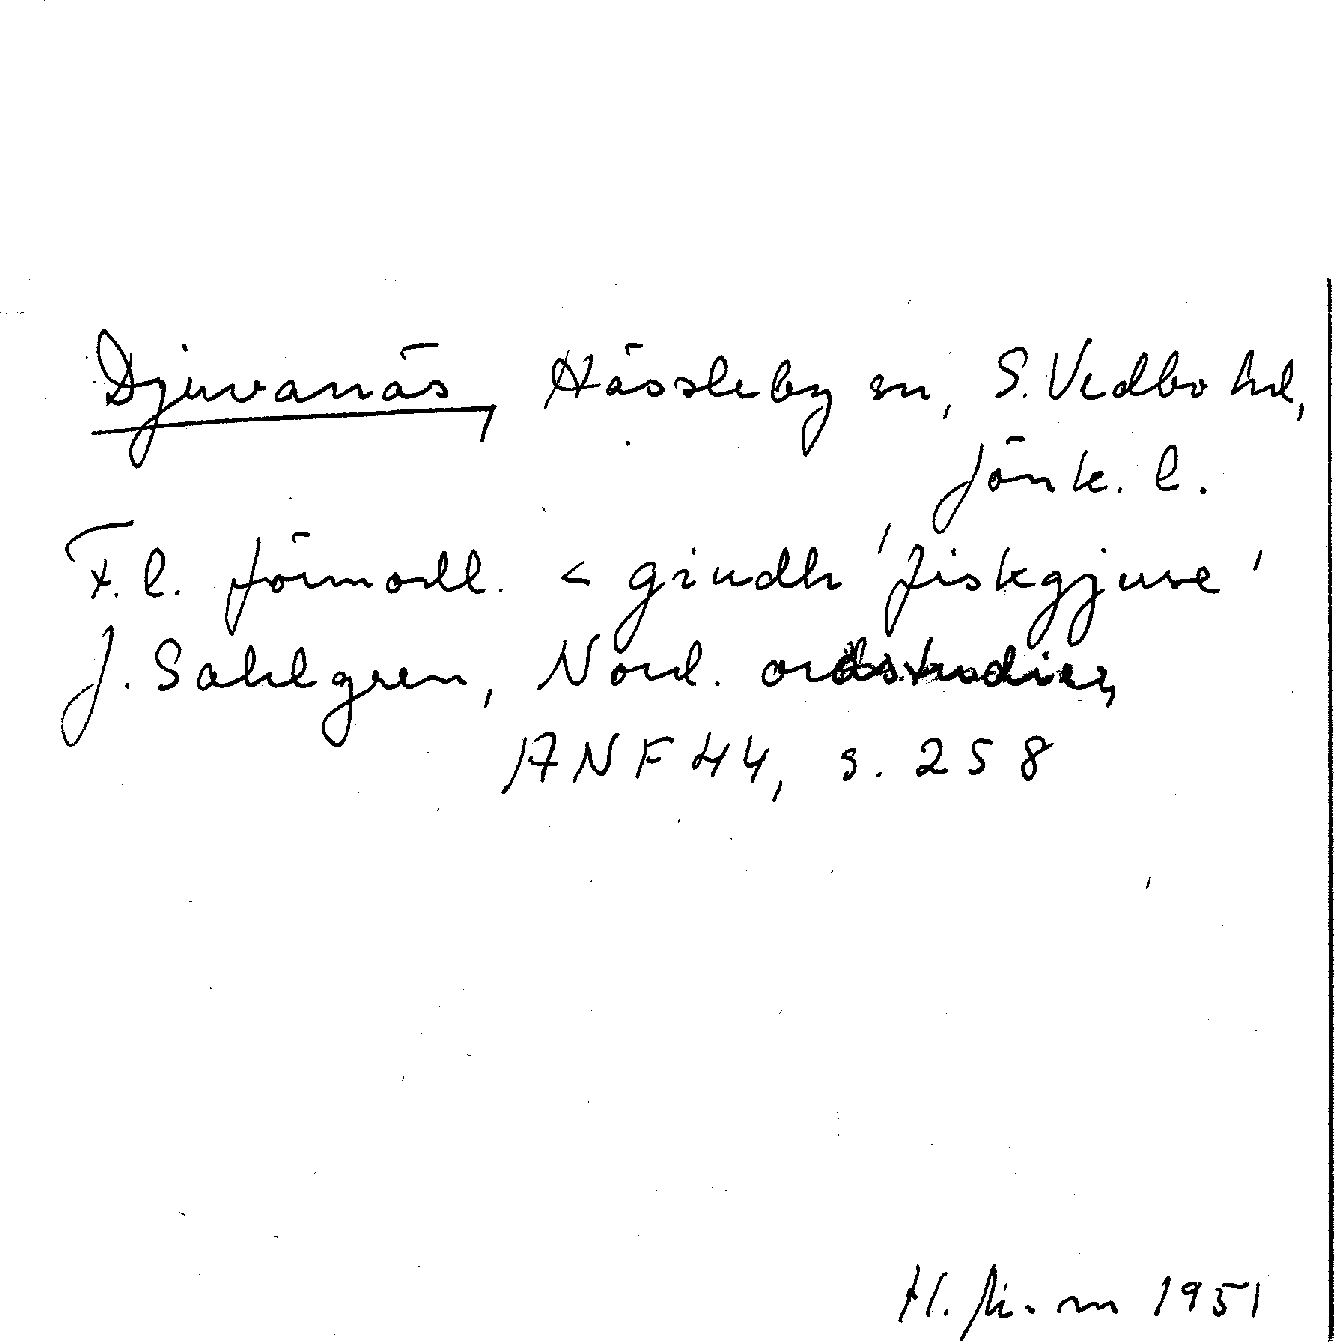 Djuvanäs, Hässleby sn, S. Vedbo hd,
Jönk. l.
F. l. förmodl. < giudh 'fiskgjuse'
J. Sahlgren, Nord. ordstudier,
ANF 44, s. 258
H. 1951